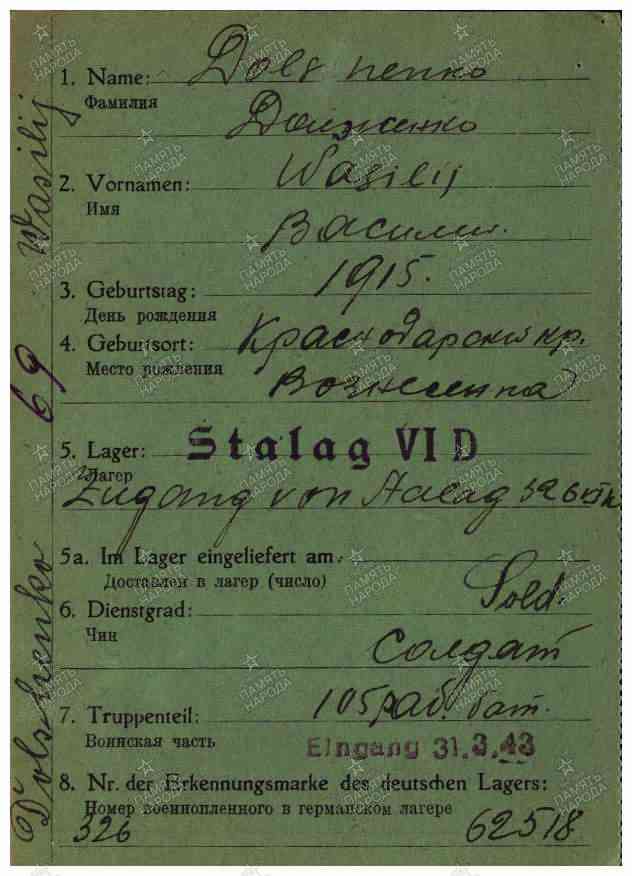 1. Name: Dolshenko
Фамилия
Долженко
2. Vornamen: Wasilij
Имя
Василий.
3. Geburtstag: 1915.
День рождения
4. Geburtsort: Краснодарский кр.
Место рождения
5. Lager: Stalag VI D
Лагер
Zugang von Stalag 326
5a. Im Lager eingeliefert am:
Доставлен в лагер (число)
6. Dienstgrad: Sold.
Чин
солдат
7. Truppenteil: 105 раб. бат.
Воинская часть
Eingang 31.3.43
8. Nr. der Erkennungsmarke des deutschen Lagers:
Номер военнопленного в германском лагере
326 62518
Dolshenko 69 Wasilij
ПАМЯТЬ
НАРОДА